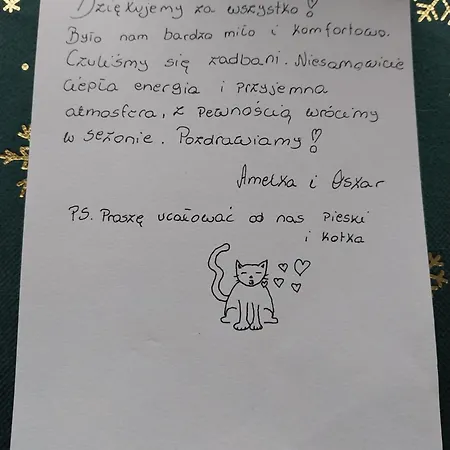 Dziękujemy za wszystko!
Było nam bardzo miło i komfortowo.
Czuliśmy się zadbani. Niesamowicie
ciepła energia i przyjemna
atmosfera, z pewnością wrócimy
w sezonie. Pozdrawiamy!
Amelka i Oskar
PS. Proszę ucałować od nas pieski
i kotka